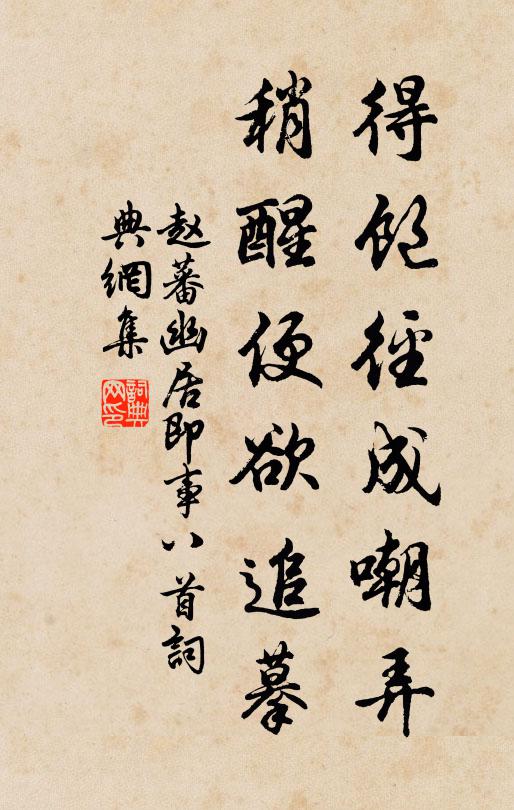 得饱径成嘲弄
稍醒便欲追摹
赵蕃幽居即事八首詞
典網集
詞典網印